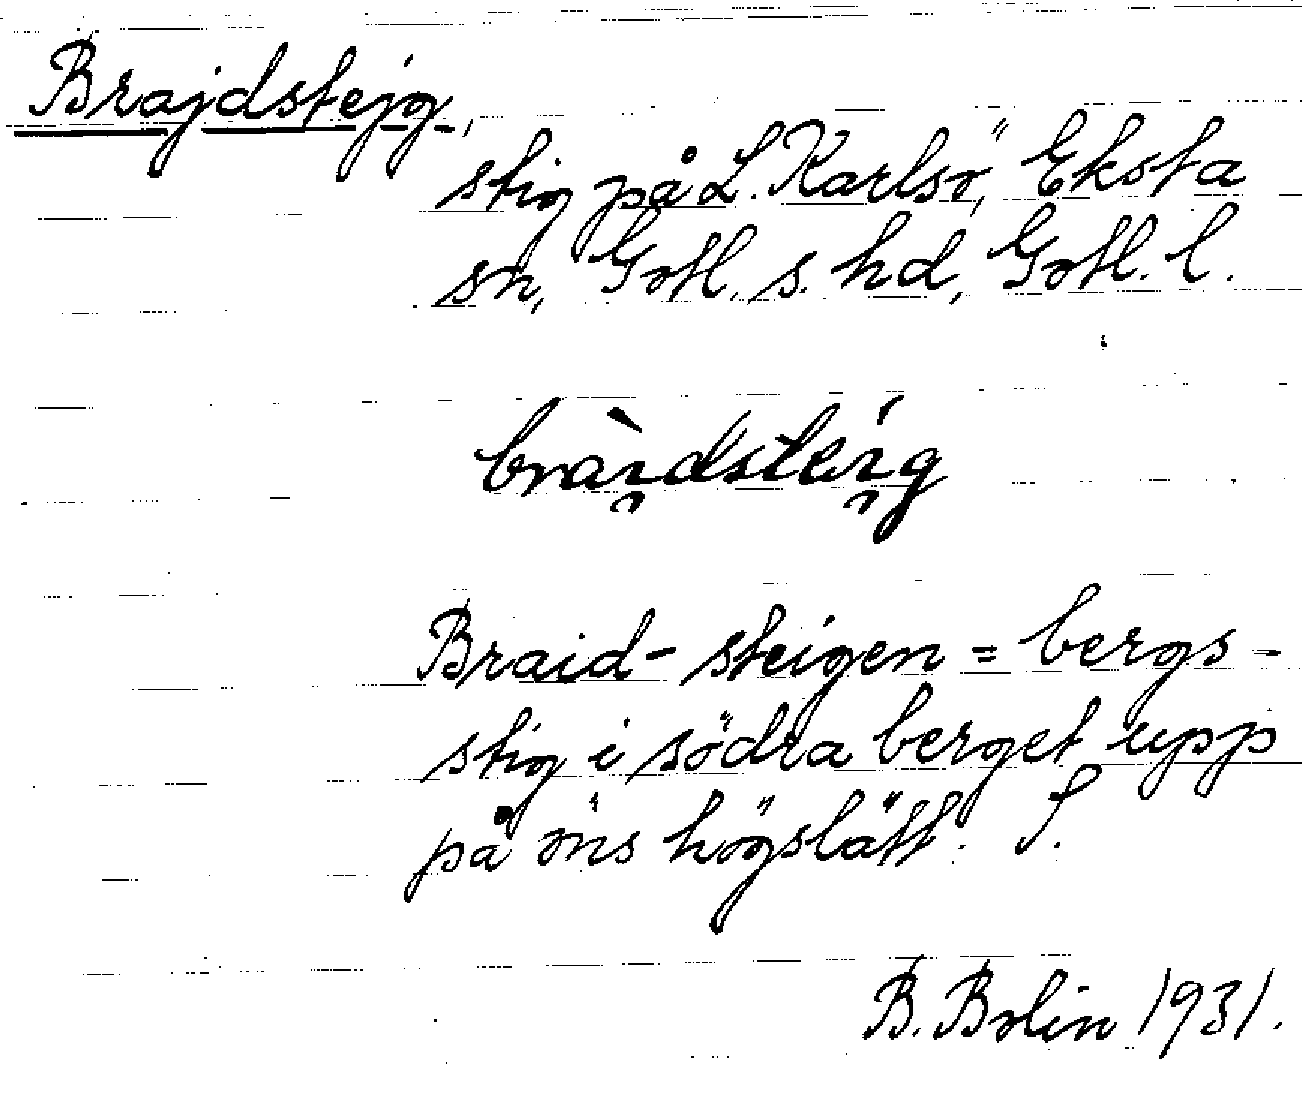 Brajdstejg,
stig på L. Karlsö, Eksta
sn, Gotl. s. hd, Gotl. l.
bràı̯dsteı̯g
Braid-steigen = bergs-
stig i södra berget upp
på öns högslätt. S.
B. Bolin 1931.